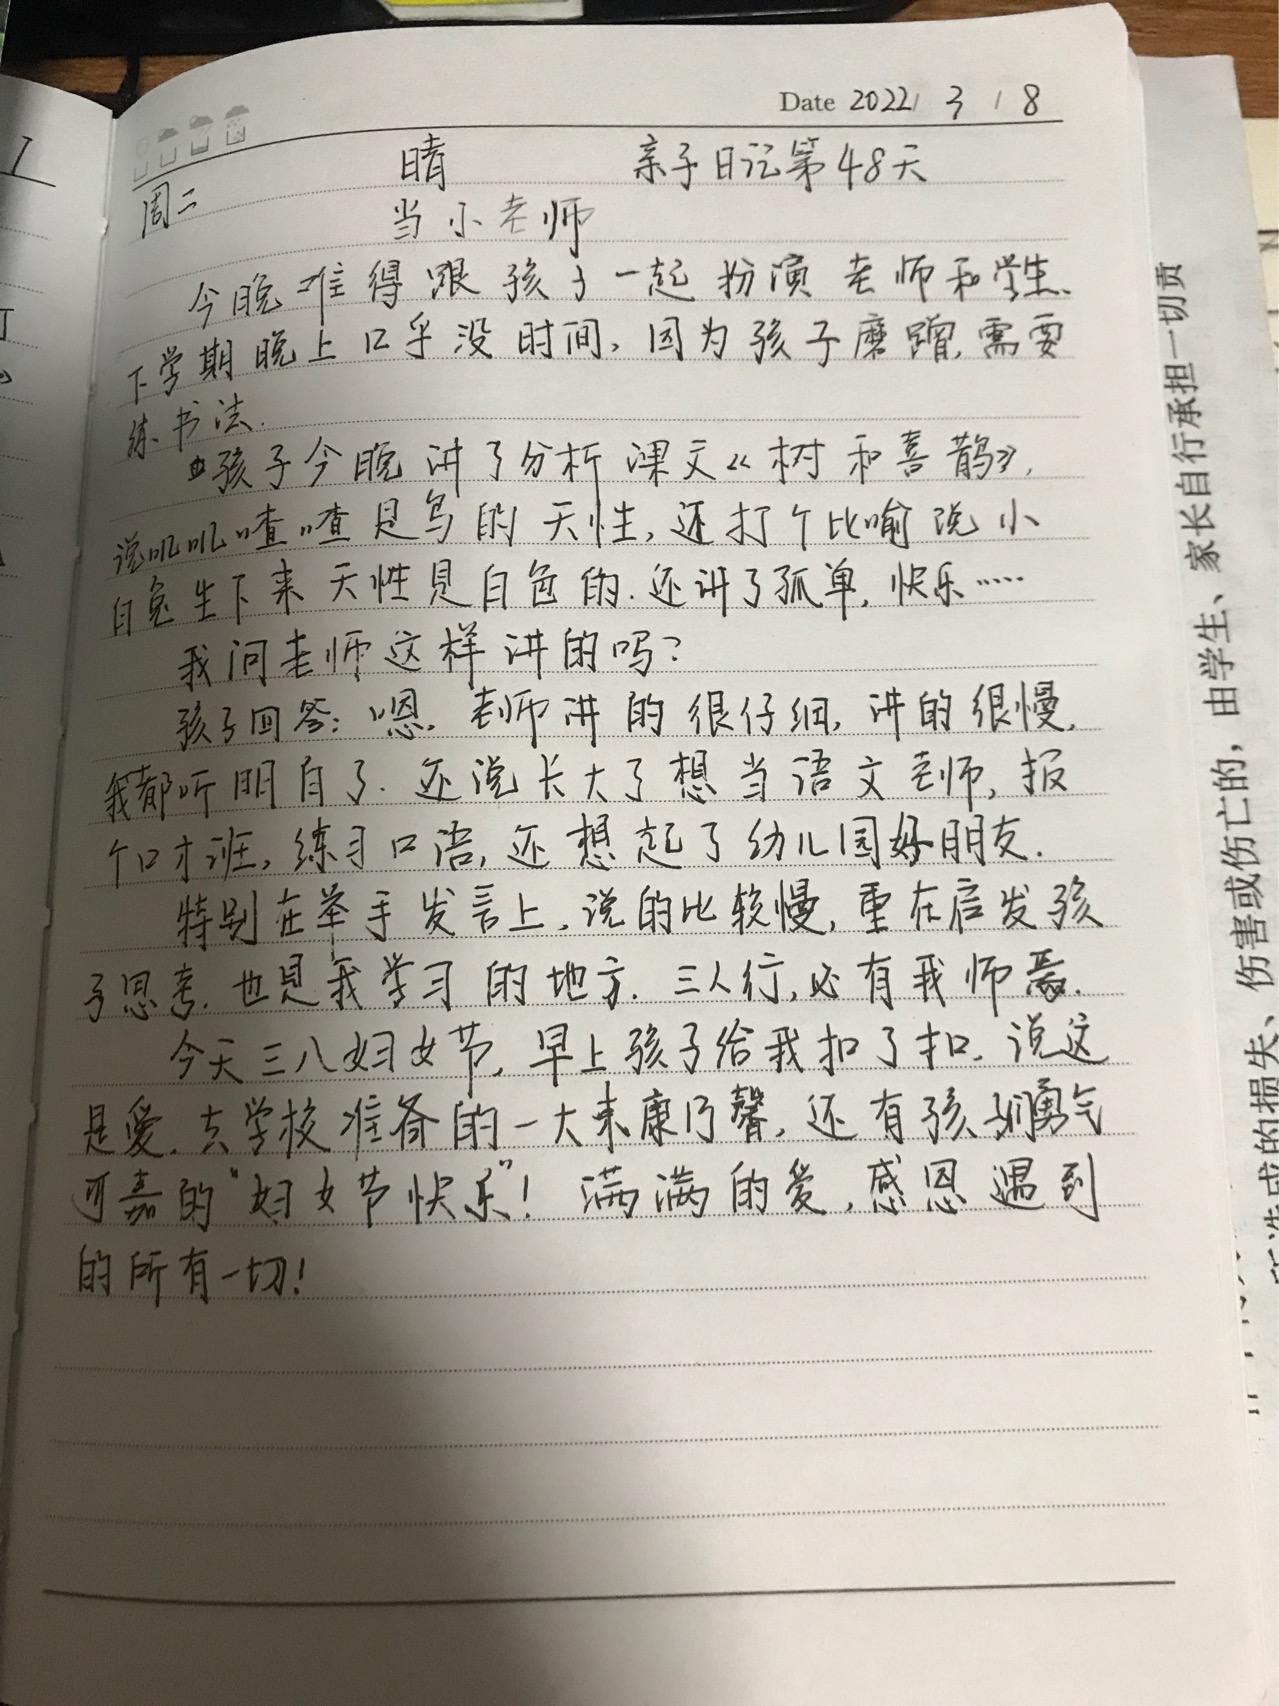 Date 2022/ 3 / 8
周二 晴 亲子日记第48天
当小老师
今晚难得跟孩子一起扮演老师和学生、
下学期晚上口乎没时间,因为孩子磨蹭,需要
练书法.
孩子今晚讲了分析课文《树和喜鹊》,
说叽叽喳喳是鸟的天性,还打个比喻说小
白兔生下来天性是白色的.还讲了孤单,快乐……
我问老师这样讲的吗?
孩子回答:嗯,老师讲的很仔细,讲的很慢,
我都听明白了.还说长大了想当语文老师,报
个口才班,练习口语,还想起了幼儿园好朋友.
特别在举手发言上,说的比较慢,重在启发孩
子思考.也是我学习的地方.三人行,必有我师焉.
今天三八妇女节,早上孩子给我扣了扣.说这
是爱.去学校准备的一大束康乃馨,还有孩子们勇气
可嘉的"妇女节快乐"!满满的爱,感恩遇到
的所有一切!
由学生、家长自行承担一切责
伤害或伤亡的,
成的损失、